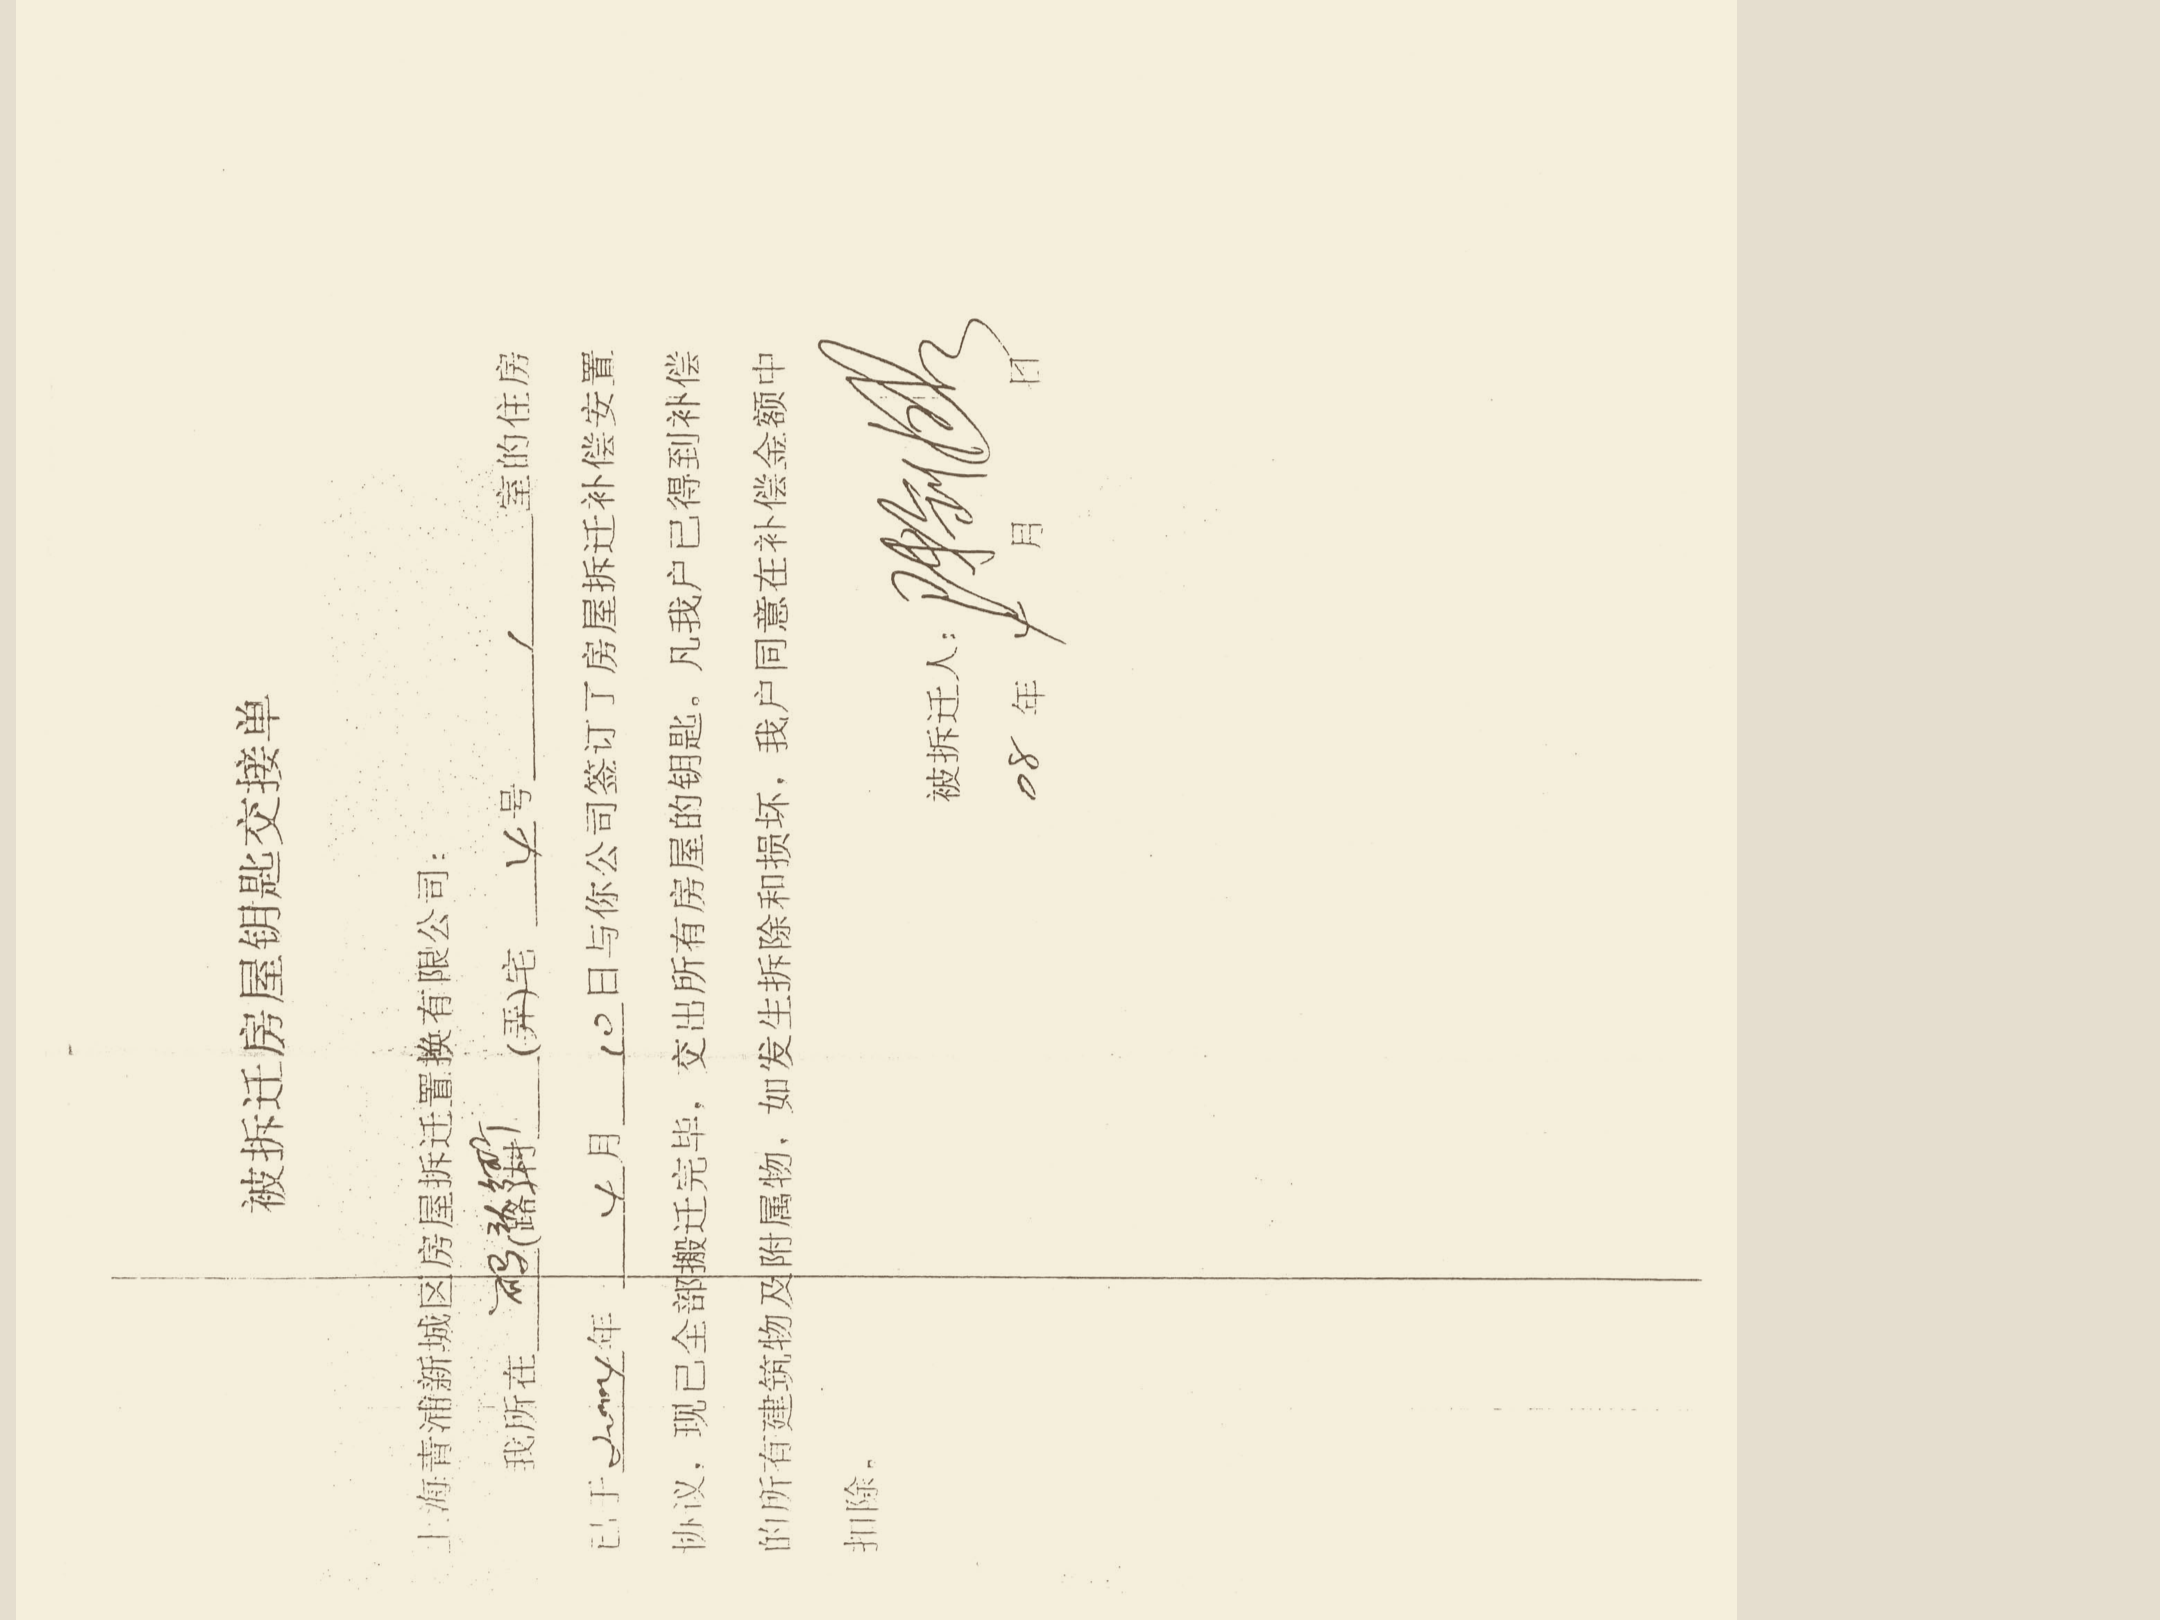 被拆迁房屋钥匙交接单
上海青浦新城区房屋拆迁置换有限公司：
我所在 (路)村 (弄)宅 4 号 / 室的住房
已于 年 4 月 10 日与你公司签订了房屋拆迁补偿安置
协议，现已全部搬迁完毕，交出所有房屋的钥匙。凡我户已得到补偿
的所有建筑物及附属物，如发生拆除和损坏，我户同意在补偿金额中
扣除。
被拆迁人：
08 年 4 月 日